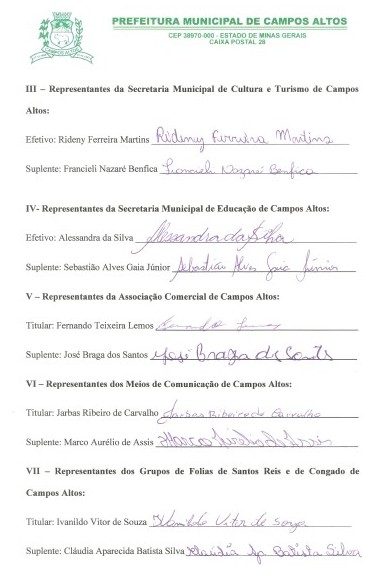 PREFEITURA MUNICIPAL DE CAMPOS ALTOS
CEP 38970-000 - ESTADO DE MINAS GERAIS
CAIXA POSTAL 28
CAMPOS ALTOS
III – Representantes da Secretaria Municipal de Cultura e Turismo de Campos
Altos:
Efetivo: Rideny Ferreira Martins Rideny Ferreira Martins
Suplente: Francieli Nazaré Benfica Francieli Nazaré Benfica
IV- Representantes da Secretaria Municipal de Educação de Campos Altos:
Efetivo: Alessandra da Silva Alessandra da Silva
Suplente: Sebastião Alves Gaia Júnior Sebastião Alves Gaia Júnior
V – Representantes da Associação Comercial de Campos Altos:
Titular: Fernando Teixeira Lemos
Suplente: José Braga dos Santos José Braga de Santos
VI – Representantes dos Meios de Comunicação de Campos Altos:
Titular: Jarbas Ribeiro de Carvalho Jarbas Ribeiro de Carvalho
Suplente: Marco Aurélio de Assis Marco Aurélio de Assis
VII – Representantes dos Grupos de Folias de Santos Reis e de Congado de
Campos Altos:
Titular: Ivanildo Vitor de Souza Ivanildo Vitor de Souza
Suplente: Cláudia Aparecida Batista Silva Claudia Ap Batista Silva